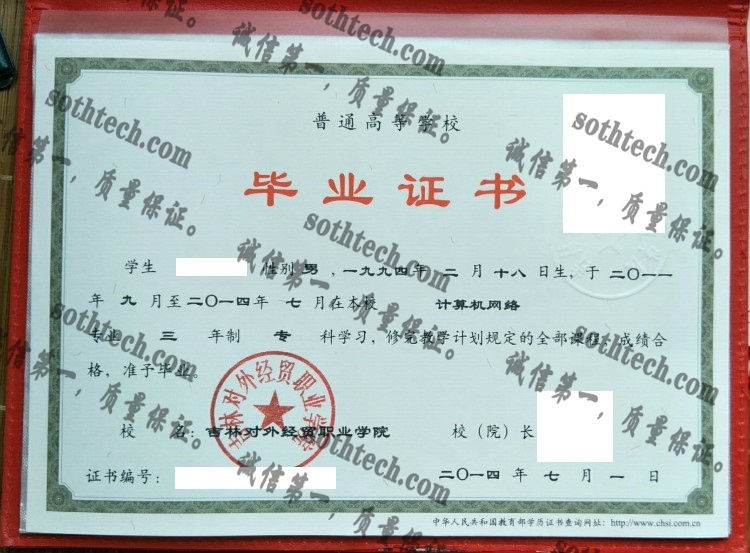 普通高等学校
毕业证书
学生 性别 男 ,一九九四年 二 月 十八 日生、于 二〇一一
年 九 月至二〇一四年 七 月在本校 计算机网络
专业 三 年制 专 科学习，修完教学计划规定的全部课程，成绩合
格，准予毕业。
吉林对外经贸职业学院
校 名：吉林对外经贸职业学院 校（院）长
证书编号： 二〇一四 年 七 月 一 日
中华人民共和国教育部学历证书查询网址：http://www.chsi.com.cn
sothtech.com
诚信第一，质量保证。
sothtech.com
诚信第一，质量保证。
sothtech.com
诚信第一，质量保证。
sothtech.com
诚信第一，质量保证。
sothtech.com
诚信第一，质量保证。
sothtech.com
诚信第一，质量保证。
sothtech.com
诚信第一，质量保证。